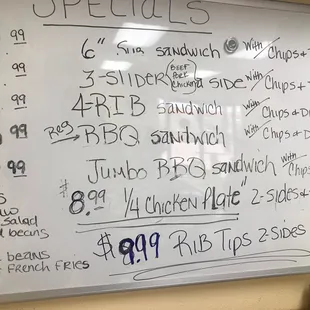 SPECIALS
99 6" Sub sandwich with Chips +
99 3-Slider BEEF BBQ Chicken a side with Chips +
99 4-RIB sandwich with Chips + D
99 Reg BBQ sandwich with Chips + D
99 Jumbo BBQ sandwich with Chips
$8.99 1/4 Chicken Plate" 2-Sides +
salad
beans
$9.99 RIB TIPS 2-SIDES
beans
FRENCH FRIES